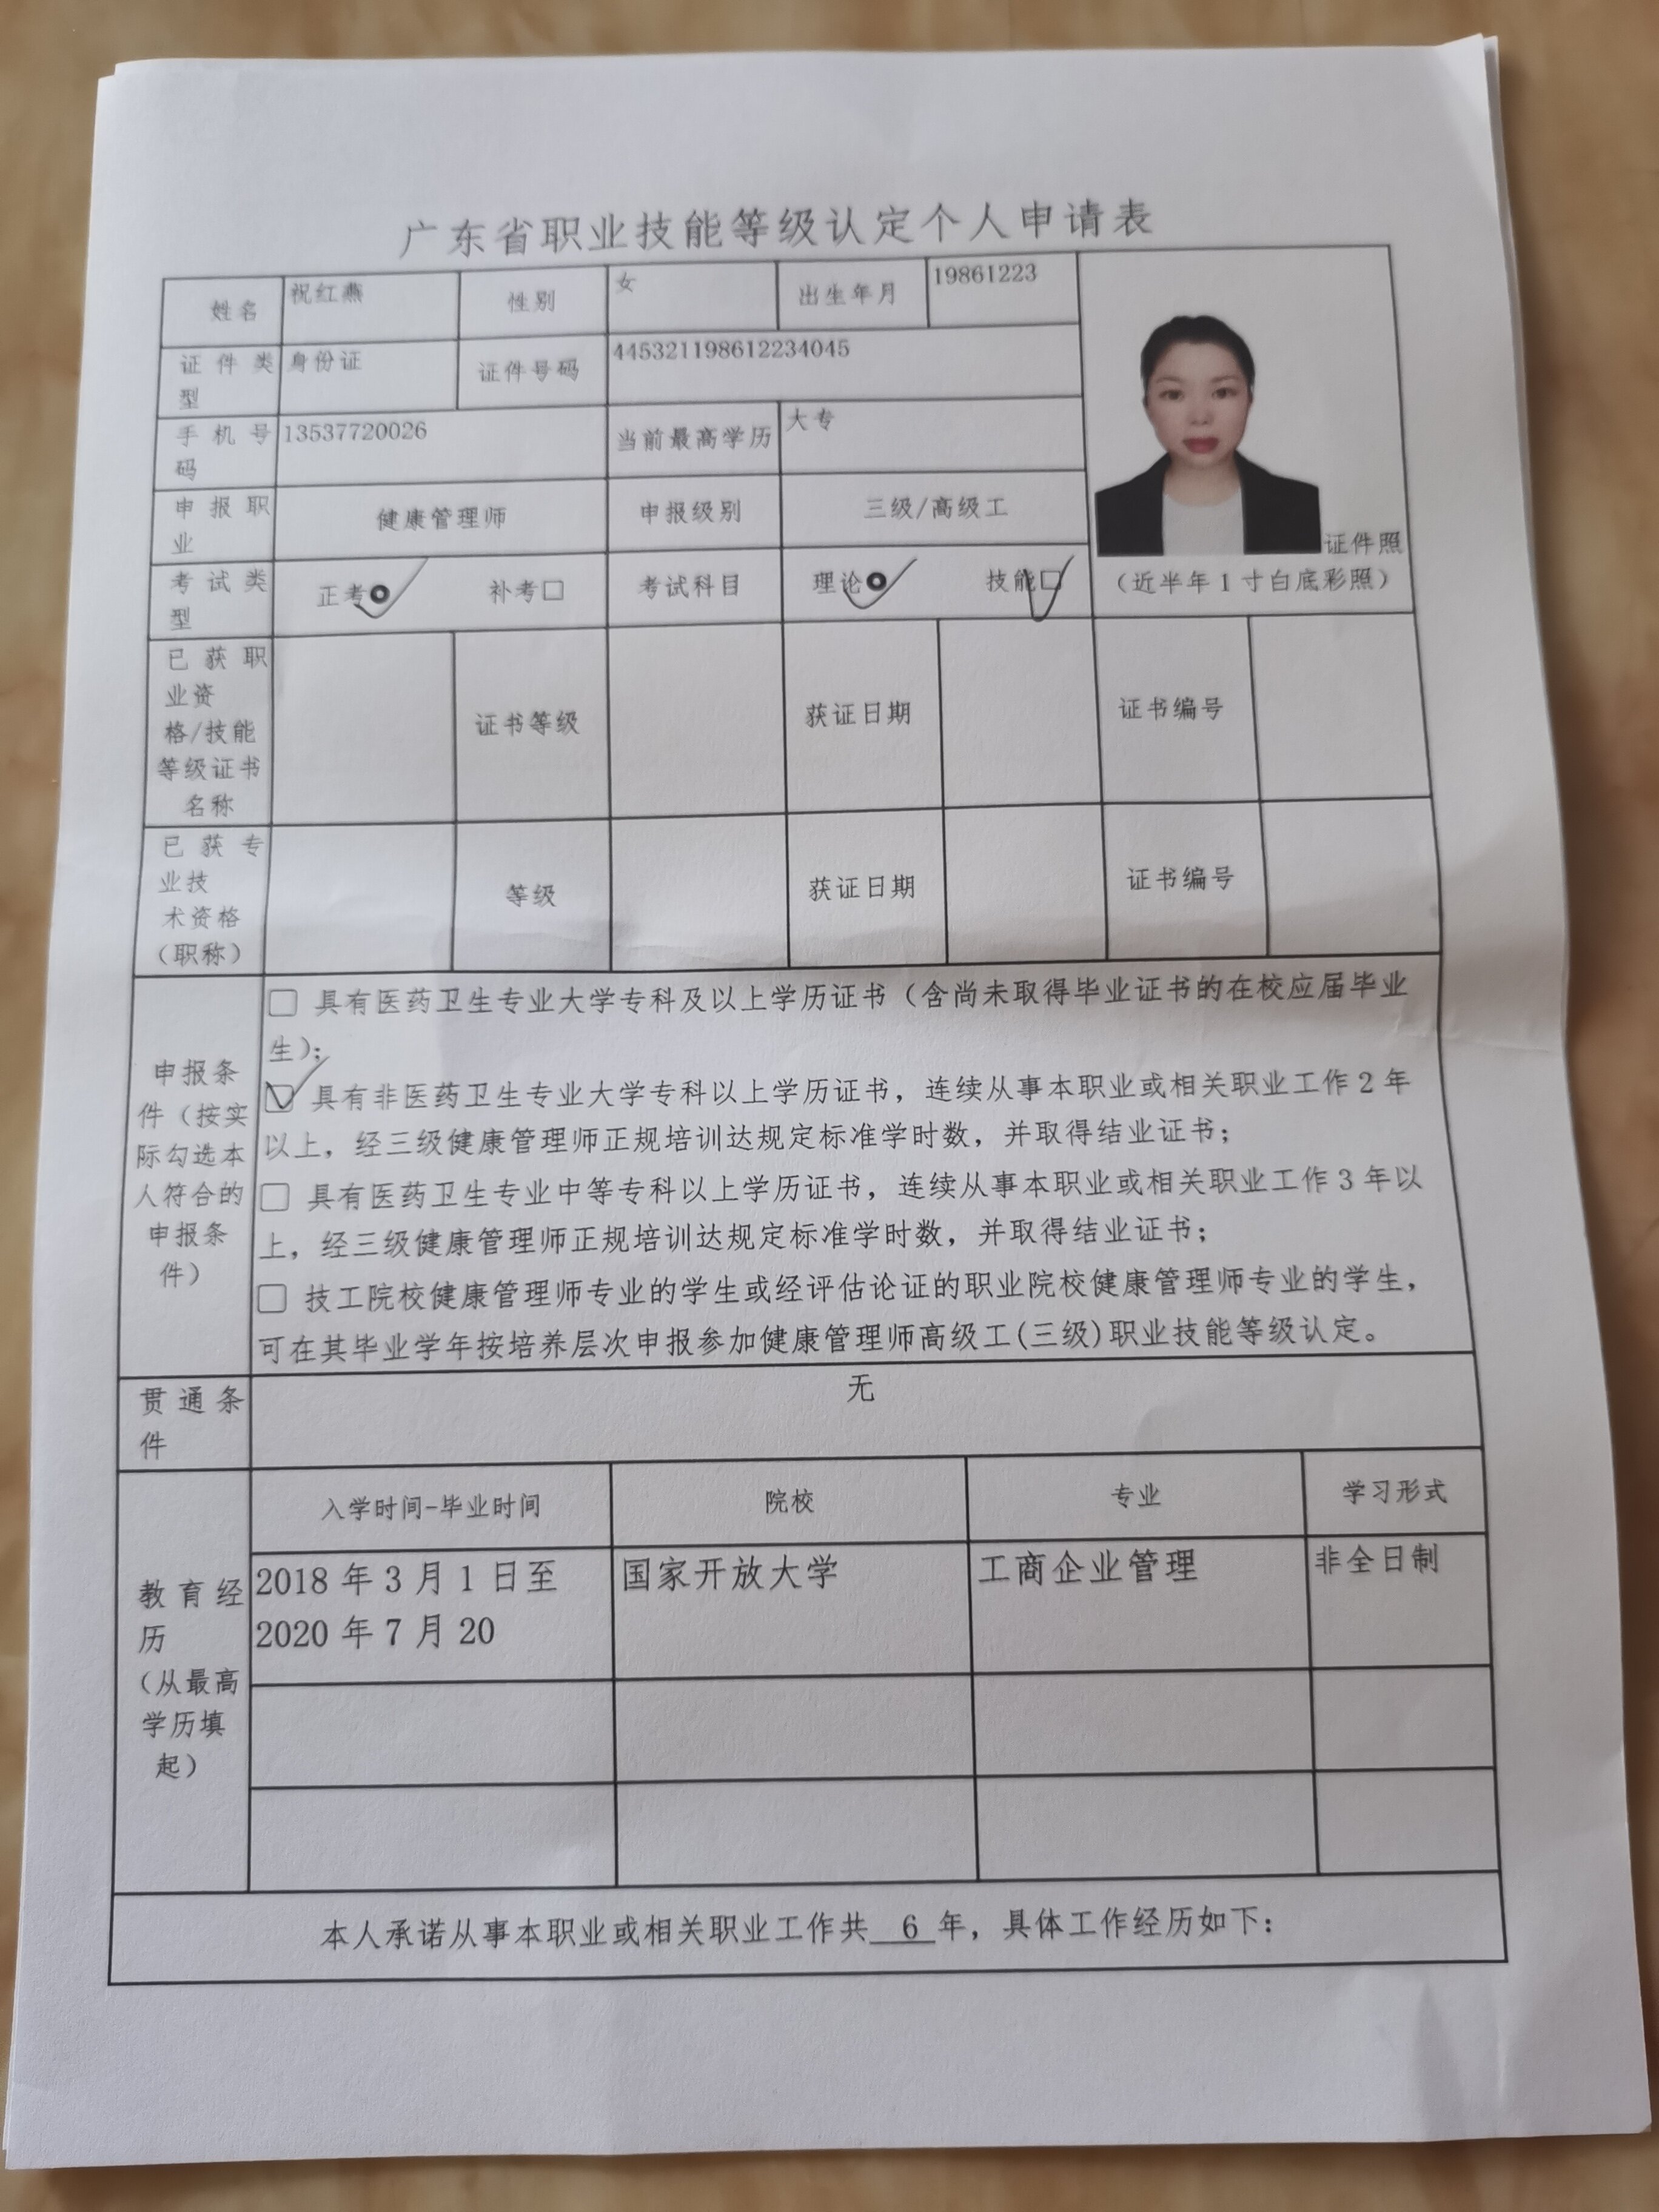 广东省职业技能等级认定个人申请表
姓名 祝红燕 性别 女 出生年月 19861223
证件类型 身份证 证件号码 445321198612234045
手机号码 13537720026 当前最高学历 大专
申报职业 健康管理师 申报级别 三级/高级工
证件照
（近半年1寸白底彩照）
考试类型 正考 补考□ 考试科目 理论 技能□
已获职业资格/技能等级证书名称 证书等级 获证日期 证书编号
已获专业技术资格（职称） 等级 获证日期 证书编号
申报条件（按实际勾选本人符合的申报条件）
□ 具有医药卫生专业大学专科及以上学历证书（含尚未取得毕业证书的在校应届毕业
生）；
☑ 具有非医药卫生专业大学专科以上学历证书，连续从事本职业或相关职业工作2年
以上，经三级健康管理师正规培训达规定标准学时数，并取得结业证书；
□ 具有医药卫生专业中等专科以上学历证书，连续从事本职业或相关职业工作3年以
上，经三级健康管理师正规培训达规定标准学时数，并取得结业证书；
□ 技工院校健康管理师专业的学生或经评估论证的职业院校健康管理师专业的学生，
可在其毕业学年按培养层次申报参加健康管理师高级工(三级)职业技能等级认定。
贯通条件 无
教育经历（从最高学历填起）
入学时间-毕业时间 院校 专业 学习形式
2018年3月1日至 国家开放大学 工商企业管理 非全日制
2020年7月20
本人承诺从事本职业或相关职业工作共 6 年，具体工作经历如下：